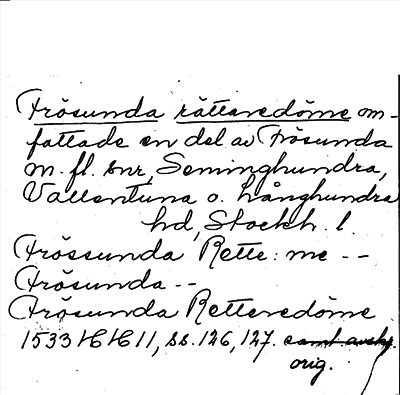 Frösunda rättaredöme om-
fattade en del av Frösunda
m. fl. snr, Seminghundra,
Vallentuna o. Långhundra
hd, Stockh. l.
Frössunda Rette: me --
Frösunda --
Frösunda Retteredöme
1533 HH 11, ss. 126, 127.
orig.